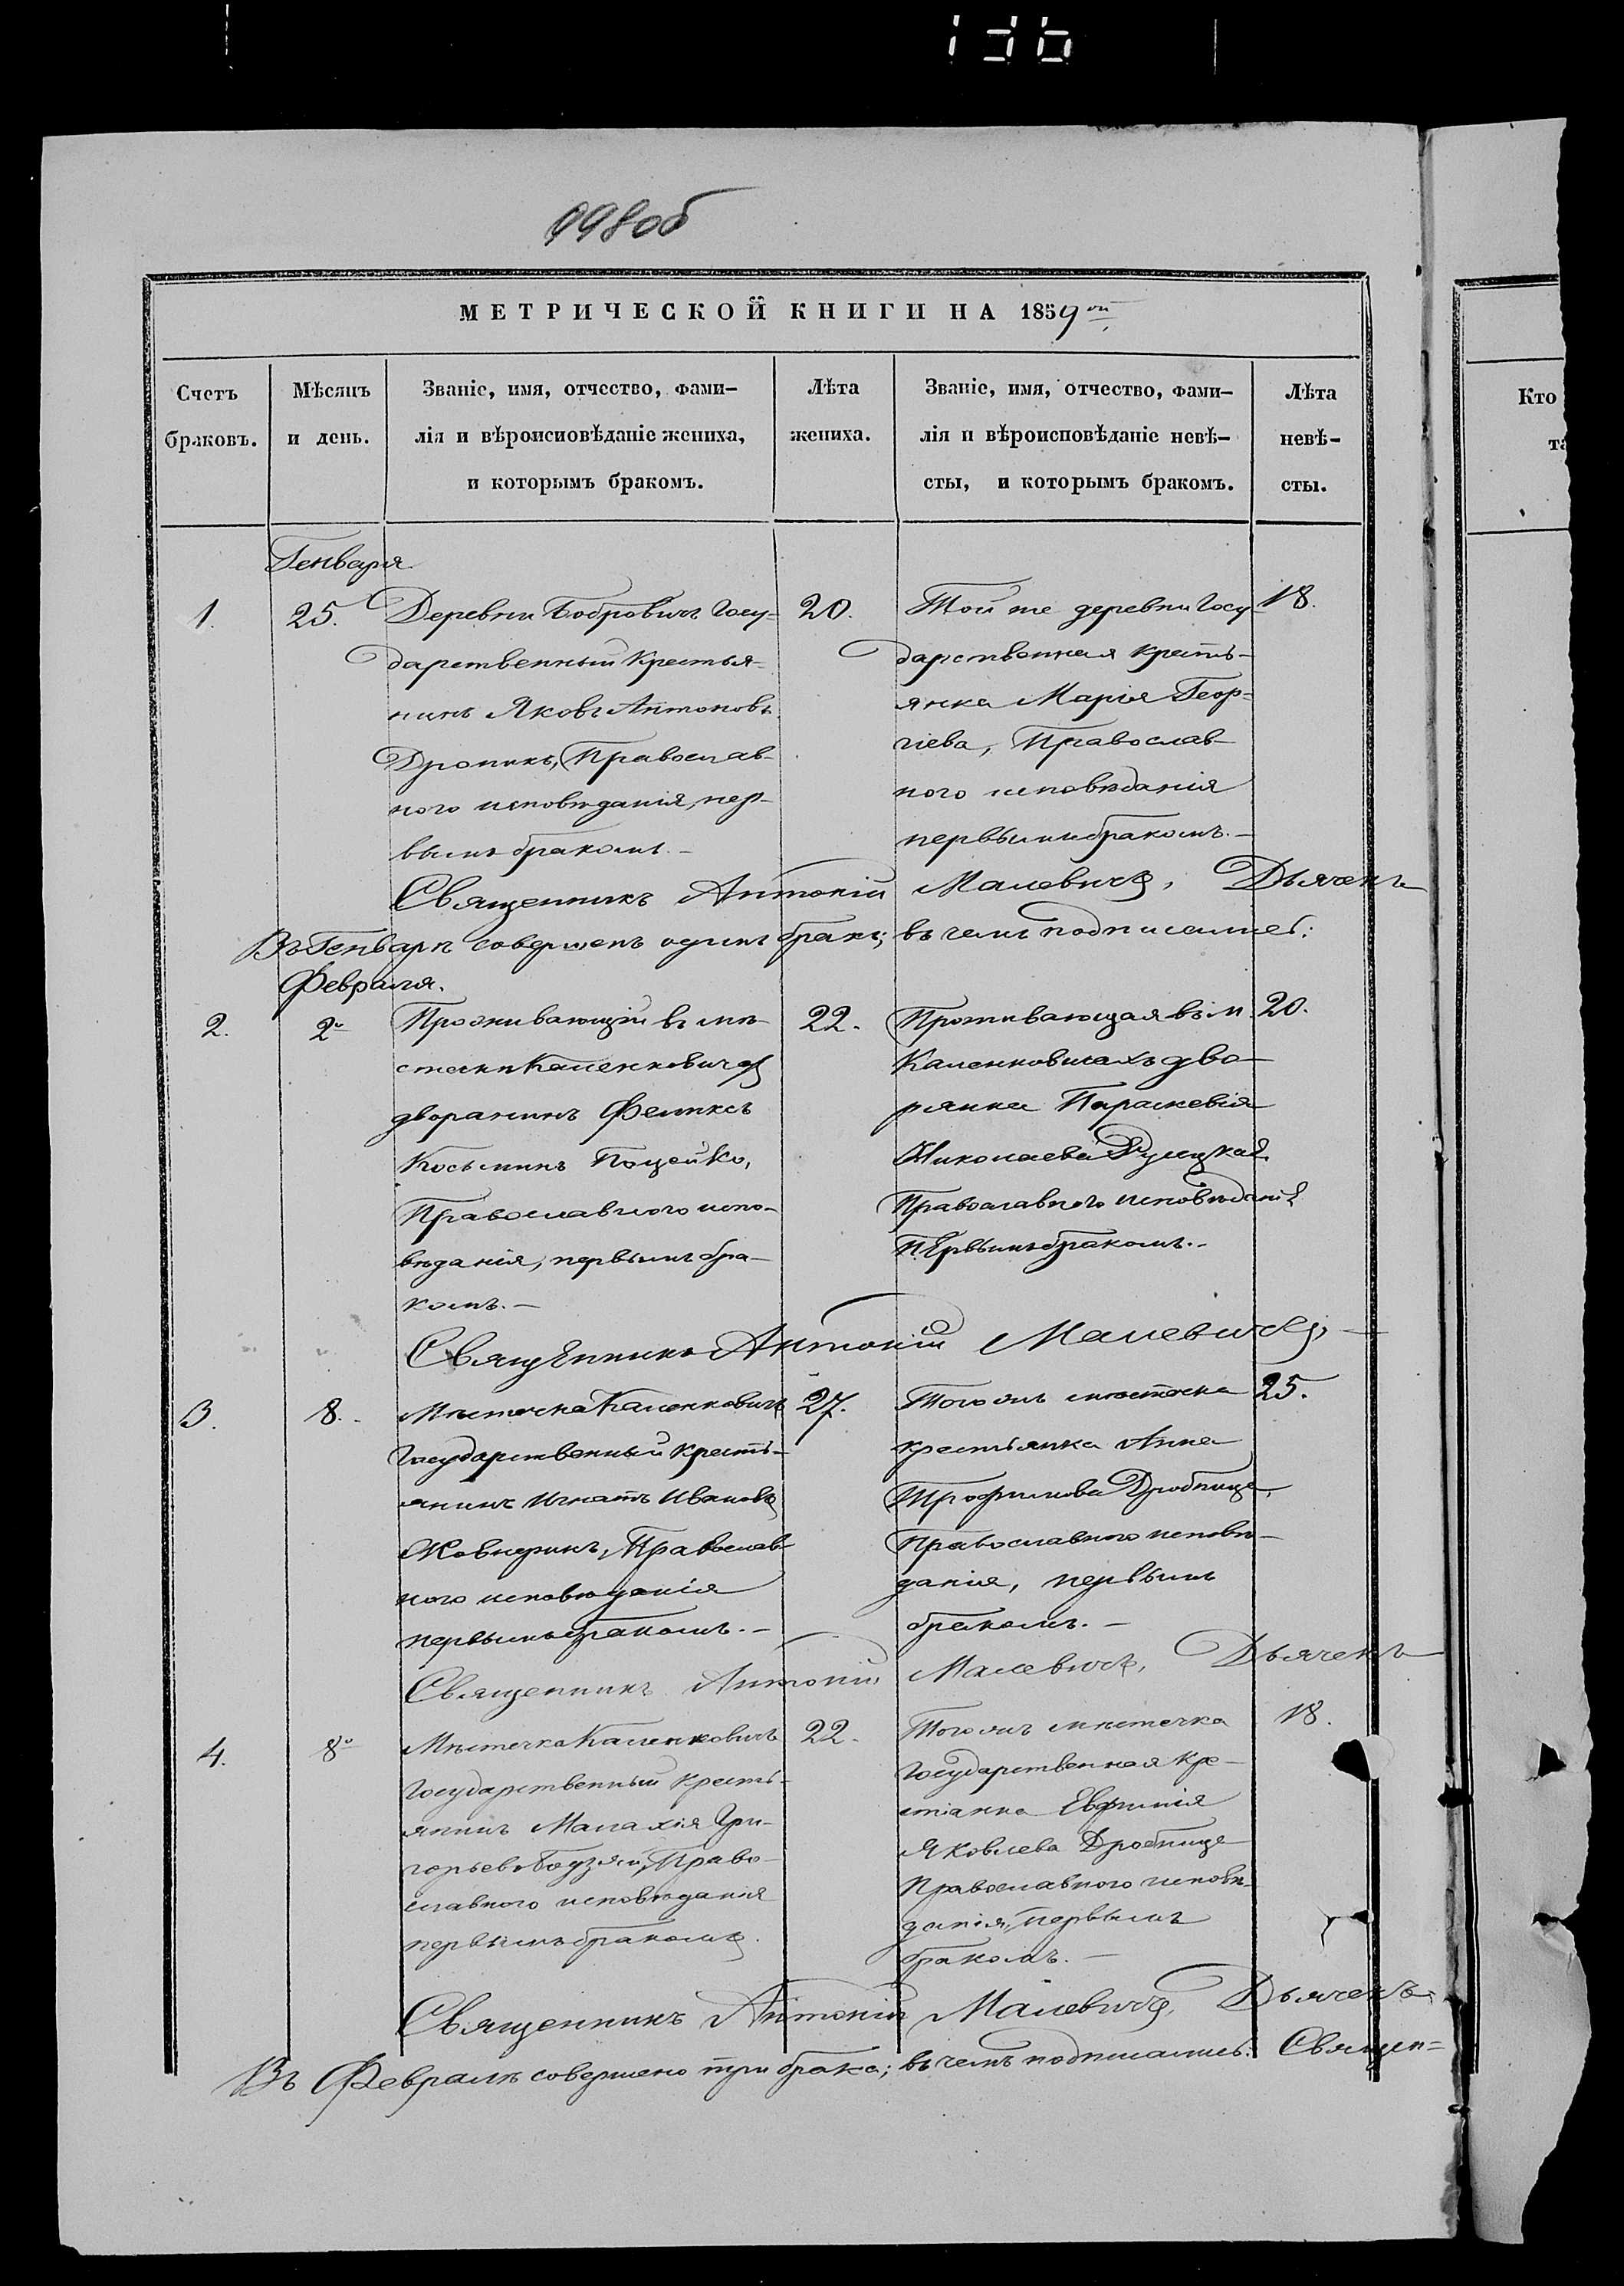 998об
МЕТРИЧЕСКОЙ КНИГИ НА 1859ый
Счетъ браковъ.
Мѣсяцъ и день.
Званіе, имя, отчество, фами-
лія и вѣроисповѣданіе жениха,
и которымъ бракомъ.
Лѣта жениха.
Званіе, имя, отчество, фами-
лія и вѣроисповѣданіе невѣ-
сты, и которымъ бракомъ.
Лѣта невѣ-
сты.
Кто
Генваря
1. 25.
Деревни Бобровичъ Госу-
дарственный Крестья-
нинъ Яковъ Антоновъ
Православ-
ного исповѣданія, пер-
вымъ бракомъ. —
20.
Той же деревни Госу-
дарственная кресть-
янка Марія Геор-
гіева, Православ-
ного исповѣданія
первымъ бракомъ. —
18.
Священникъ Антоній Малевичъ, Дьячекъ
Въ Генварѣ совершенъ одинъ бракъ; въ чемъ подписались:
Февраля.
2. 2о
Проживающій въ мѣ-
стечкѣ Каленковичахъ
дворанинъ Феликсъ
Косьминъ Поцейко,
Православного испо-
вѣданія, первымъ бра-
комъ. —
22.
Проживающая въ м.
Каленковичахъ дво-
рянка Параскевія
Николаева
Православного исповѣданія
первымъ бракомъ. —
20.
Священникъ Антоній Малевичъ, —
3. 8.
Мѣстечка Каленковичъ
Государственный кресть-
янинъ Игнатъ Ивановъ
Жовнеринъ, Православ-
ного исповѣданія
первымъ бракомъ. —
27.
Того жъ мѣстечка
крестьянка Анна
Трофимова Дробница,
Православного исповѣ-
данія, первымъ
бракомъ. —
25.
Священникъ Антоній Малевичъ, Дьячекъ
4. 8о
Мѣстечка Каленковичъ
Государственный кресть-
янинъ Малахія Гри-
горьевъ Право-
славного исповѣданія
первымъ бракомъ.
22.
Того жъ мѣстечка
Государственная кре-
стіанка Евфимія
Яковлева Дробница
Православного исповѣ-
данія, первымъ
бракомъ. —
18.
Священникъ Антоній Малевичъ, Дьячекъ
Въ Февралѣ совершено три брака; въ чемъ подписались: Священ=